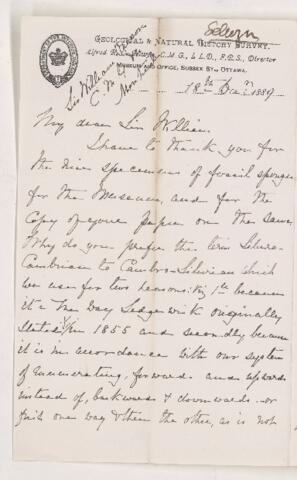 Selwyn
GEOLOGICAL & NATURAL HISTORY SURVEY.
Alfred R. C. Selwyn, C.M.G., L.L.D., F.R.S., Director
MUSEUM AND OFFICE, SUSSEX ST. OTTAWA.
Sir William Dawson
C. M. G.
Montreal
18th 1889
My dear Sir William.
I have to thank you for
the nine specimens of fossil sponges
for the Museum, and for the
Copy of your paper on the same.
Why do you prefer the term Siluro-
Cambrian to Cambro-Silurian which
we use for two reasons: 1st because
it is the way Sedgwick originally
stated it in 1855 and secondly because
it is in accordance with our system
of enumerating, forwards and upwards
instead of, backwards & downwards or
first one way & then the other, as is not